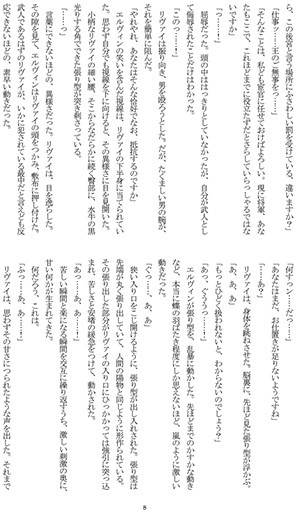 ら、この後宮と言う場所にふさわしい罰を受けている、違いますか?」
「仕事ッ……王のご無事をっ……」
「そんなことは、私ども宦官に任せておけばよろしい。現に将軍、あなたもここで、これほどまでに役立たずだとさらしていらっしゃるではないですか」
屈辱だった。頭の中ははっきりとしていなかったが、自分が武人として侮辱されたことだけはわかった。
「このっ……」
リヴァイは振り向き、男を殴ろうとした。だが、たくましい男の腕が、それを簡単に阻んだ。
「やれやれ、あなたはそんな恰好でなお、抵抗するのですか」
エルヴィンの笑いを含んだ視線は、リヴァイの下半身に当てられていた。思わず自分でも視線を下に向けると、その異様さに目を見開いた。
小柄なリヴァイの細い腰、そこからなだらかに続く臀部に、水牛の黒光りする角でできた張り型が突き刺さっている。
「……っ」
言葉にできないほどの、異様だった。リヴァイは、目を逸らした。
その隙を見て、エルヴィンはリヴァイの頭をつかみ、敷布に押し付けた。武人であるはずのリヴァイが、いかに犯されている最中だと言えども反応できないほどの、素早い動きだった。
「何すっ……だっ……」
「あなたはまだ、お仕置きが足りないようですね」
「……あう」
リヴァイは、身体を跳ねさせた。脳裏に、先ほど見た張り型が浮かぶ。
「あ、あ、あ」
「もっとひどく扱われないと、わからないのでしょう?」
「あっ、ぐううっ……」
エルヴィンが張り型を、乱暴に動かした。先ほどまでのかすかな動きなど、本当に蝶の羽ばたき程度にしか思えないほど、嵐のように激しい動きだった。
「ぐっ……、あ、あ」
狭い入り口をこじ開けるように、張り型が出し入れされた。張り型は先端が丸く張り出していて、人間の陽物と同じように形作られている。その張り出した部分がリヴァイの入り口にひっかかっては強引に突っ込まれ、苦しさと安堵の緩急をつけて、動かされた。
「あっ……あ、あ……」
苦しい瞬間と楽になる瞬間を交互に繰り返すうち、激しい刺激の奥に、甘い何かが生まれてきた。
何だろう、これは。
「ふっ……あ、あ……」
リヴァイは、思わずその甘さにつられたような声を出した。それまで
8